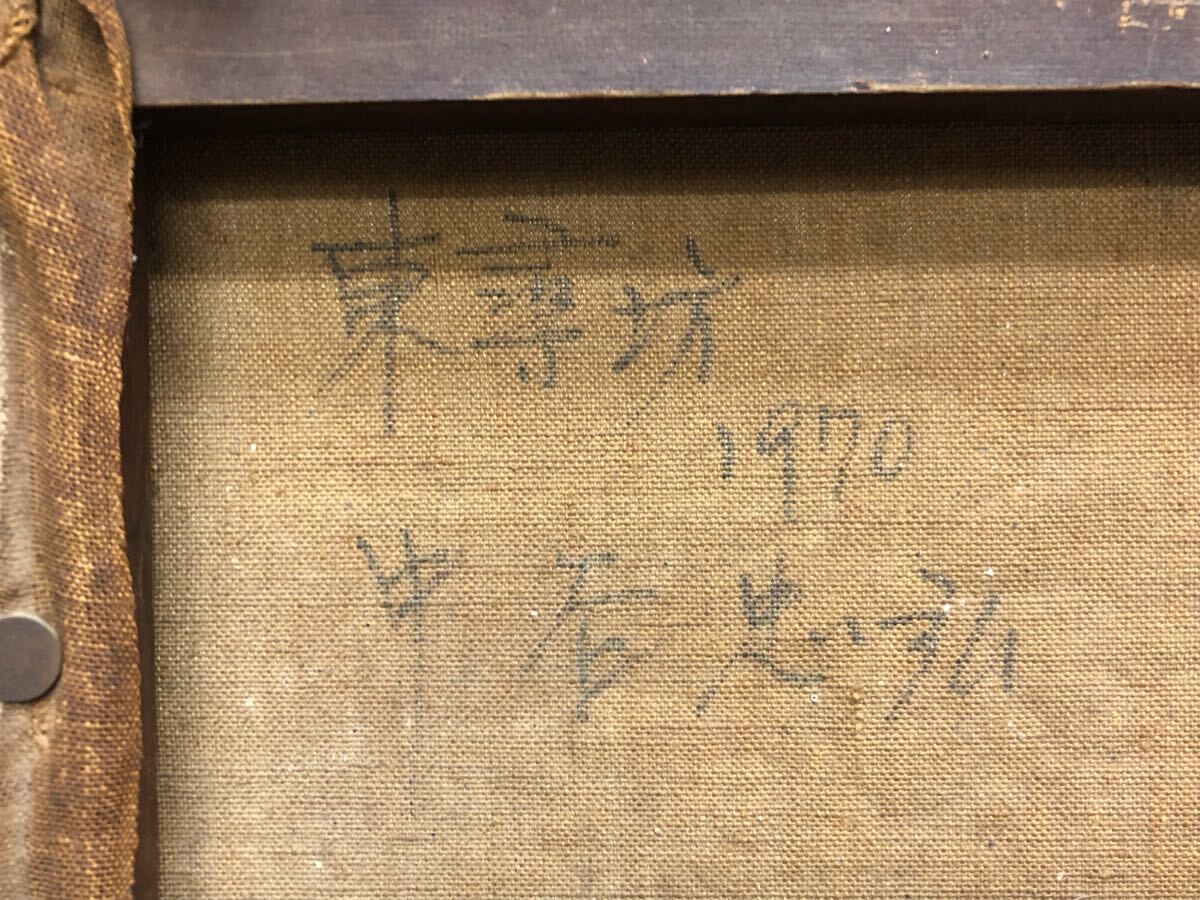 東尋坊
1970
中谷忠弘